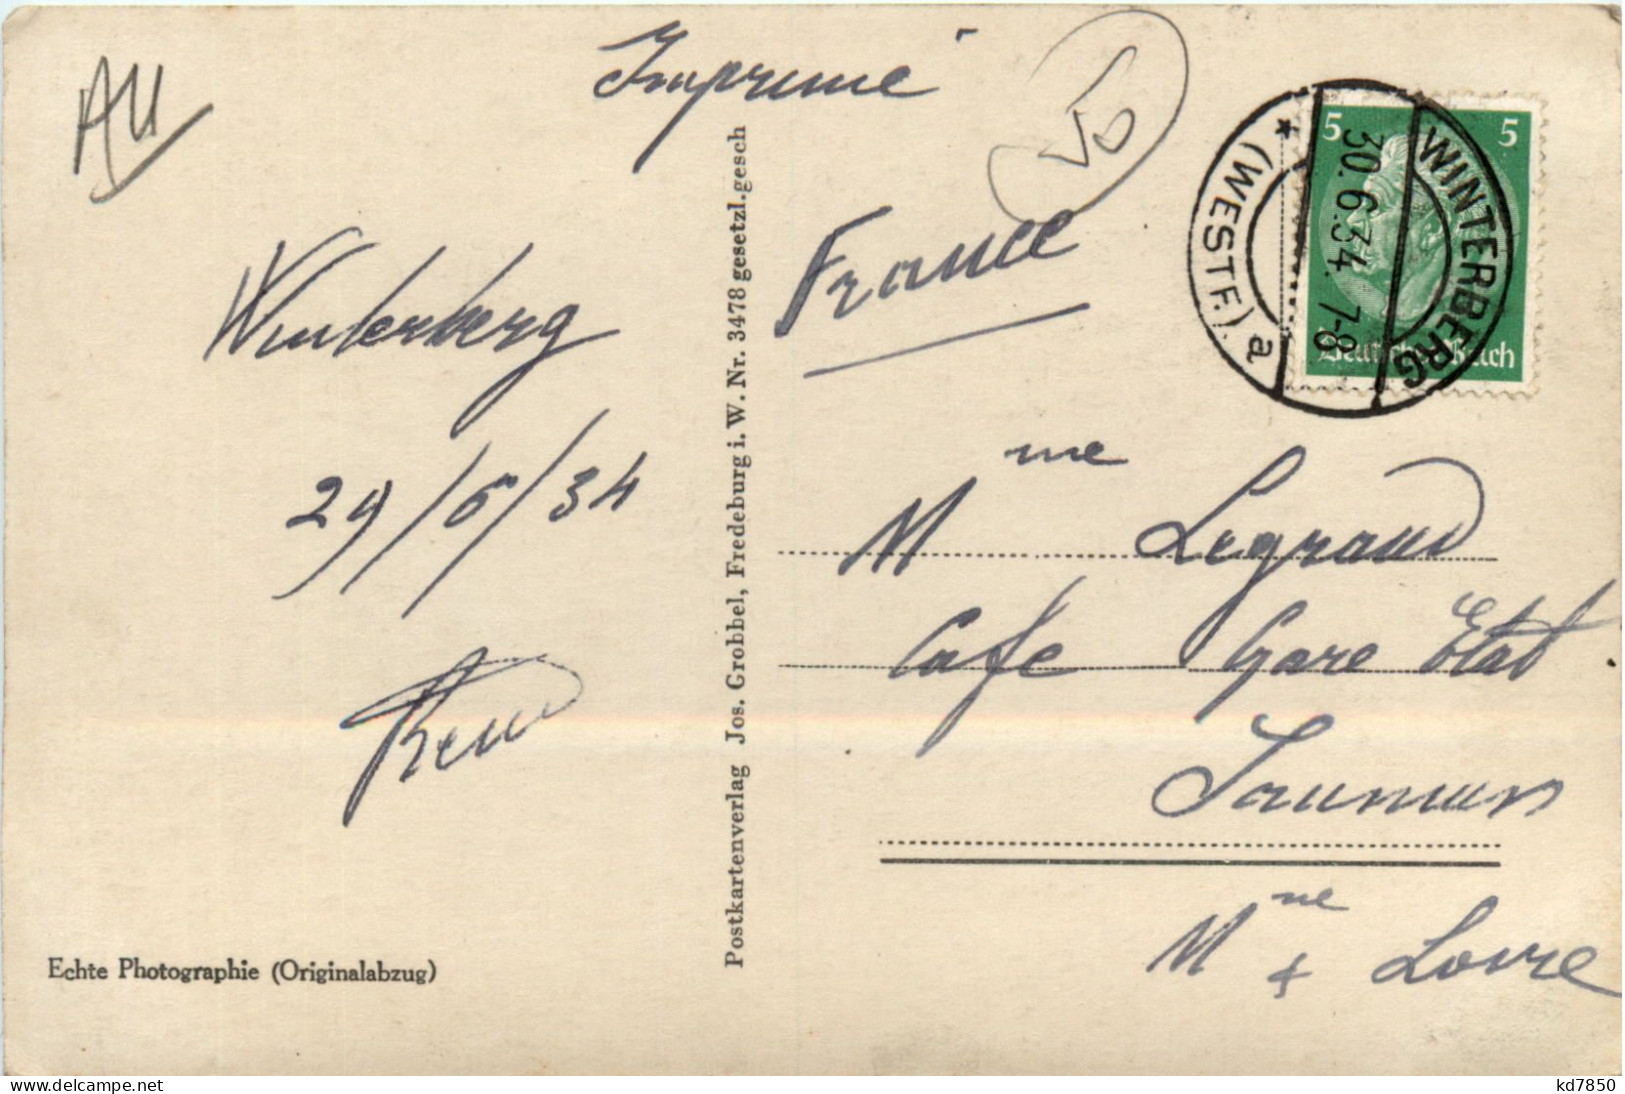 Imprimé
AU
50
France
5 5
Deutsches Reich
WINTERBERG
30.6.34. 7-8
(WESTF.) a
Winterberg
29/6/34
Mme Legrand
Cafe Gare Etat
Saumur
Mne & Loire
Postkartenverlag Jos. Grobbel, Fredeburg i. W. Nr. 3478 gesetzl. gesch
Echte Photographie (Originalabzug)
kd7850